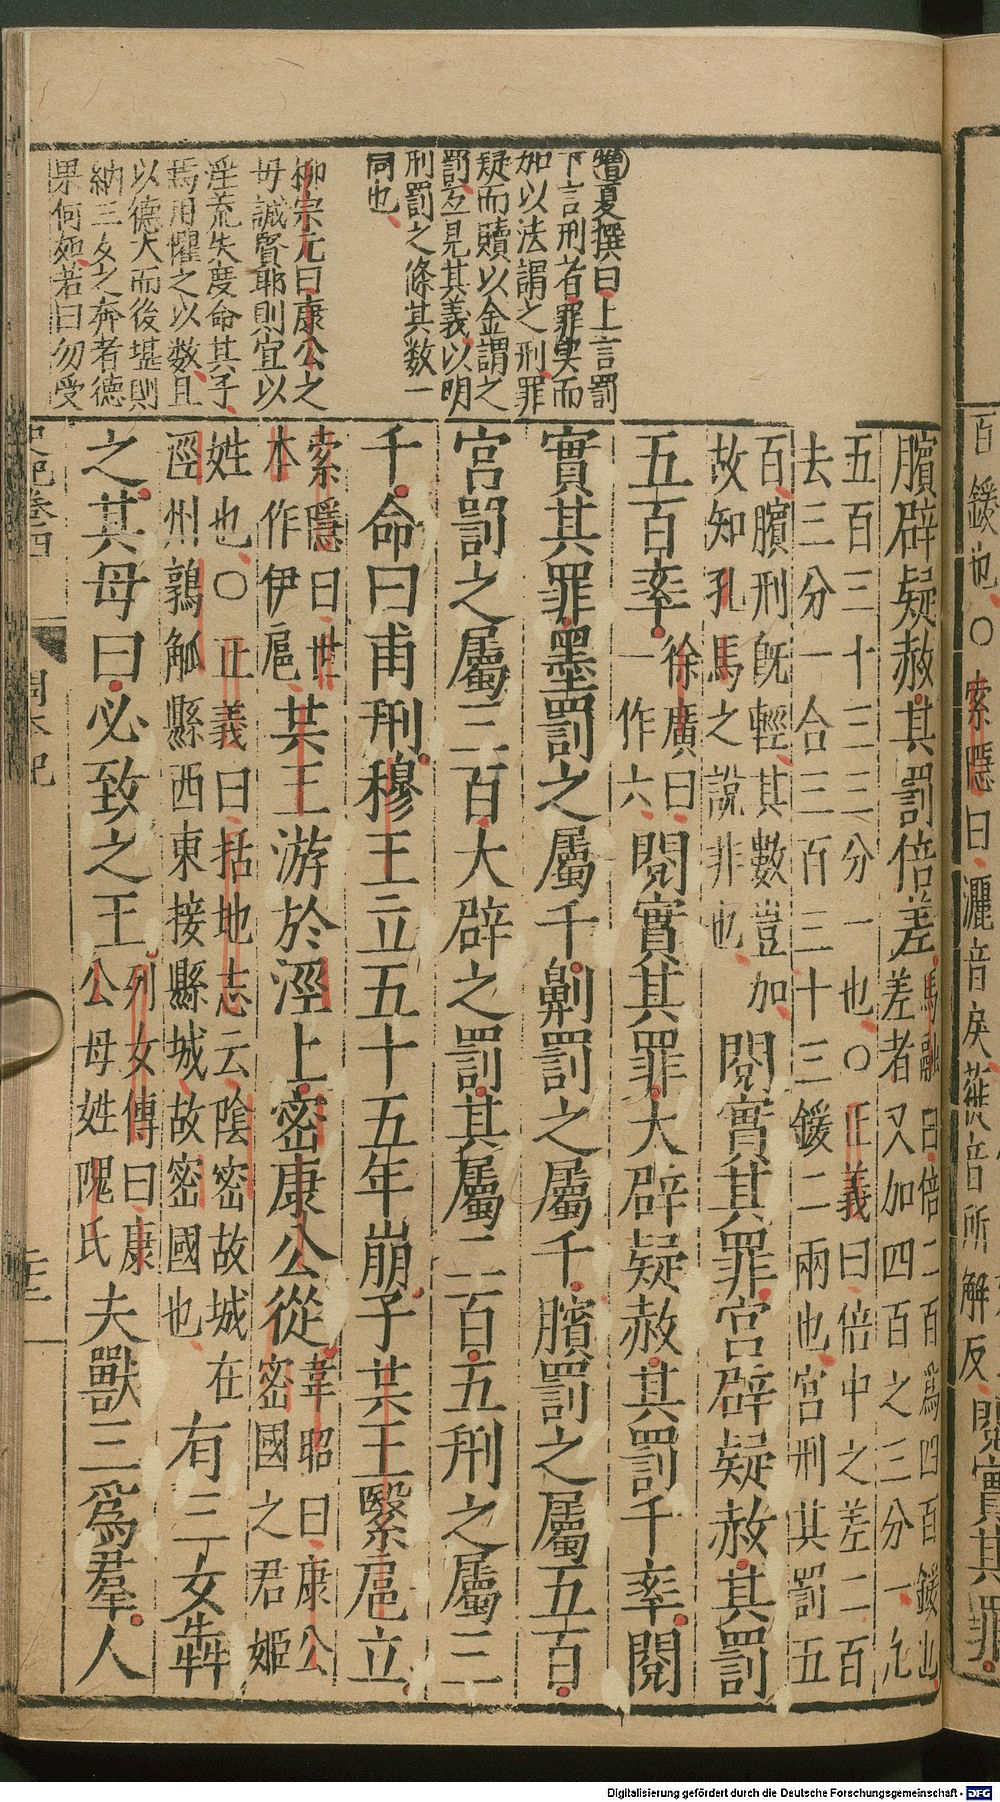 百鍰也○索隱曰灑音戾蓰音所解反閱實其罪
增夏撰曰上言罰
下言刑者罪實而
加以法謂之刑罪
疑而贖以金謂之
罰互見其義以明
刑罰之條其數一
同也
柳宗元曰康公之
母誠賢耶則宜以
淫荒失度命其子
焉用懼之以數且
以德大而後堪則
納三女之奔者德
果何如若曰勿受
臏辟疑赦其罰倍差馬融曰倍二百爲四百鍰也差者又加四百之三分一凡
五百三十三三分一也○正義曰倍中之差二百
去三分一合三百三十三鍰二兩也宮刑其罰五
百臏刑旣輕其數豈加故知孔馬之說非也閱實其罪宮辟疑赦其罰
五百率徐廣曰一作六閱實其罪大辟疑赦其罰千率閱
實其罪墨罰之屬千劓罰之屬千臏罰之屬五百
宮罰之屬三百大辟之罰其屬二百五刑之屬三
千命曰甫刑穆王立五十五年崩子共王繄扈立
索隱曰世本作伊扈共王游於涇上密康公從韋昭曰康公密國之君姬
姓也○正義曰括地志云陰密故城在涇州鶉觚縣西東接縣城故密國也有三女犇
之其母曰必致之王列女傳曰康公母姓隗氏夫獸三爲羣人
史記卷四 周本紀
Digitalisierung gefördert durch die Deutsche Forschungsgemeinschaft - DFG